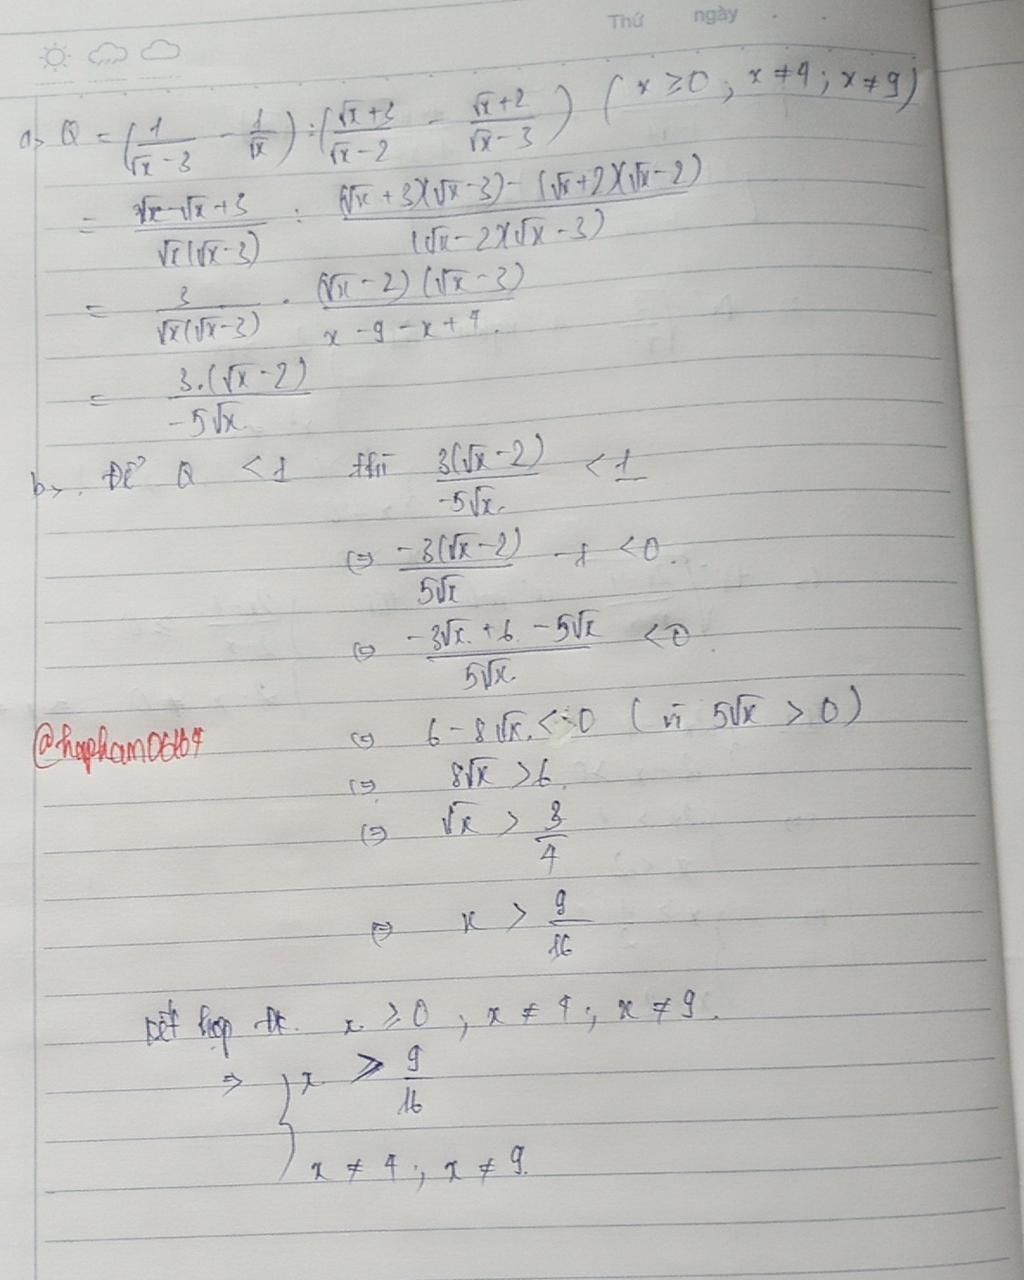 Thứ ngày
a, Q = (1/(√x - 3) - 1/√x) : ((√x+3)/(√x-2) - (√x+2)/(√x-3)) (x ≥ 0; x ≠ 4; x ≠ 9)
= (√x - √x + 3)/(√x(√x-3)) : ((√x+3)(√x-3) - (√x+2)(√x-2))/((√x-2)(√x-3))
= 3/(√x(√x-3)) . ((√x-2)(√x-3))/(x - 9 - x + 4)
= 3.(√x-2)/(-5√x)
b, Để Q < 1 thì 3(√x-2)/(-5√x) < 1
⇔ -3(√x-2)/(5√x) - 1 < 0
⇔ (-3√x + 6 - 5√x)/(5√x) < 0
@hapham06164 ⇔ 6 - 8√x < 0 (vì 5√x > 0)
⇔ 8√x > 6
⇔ √x > 3/4
⇔ x > 9/16
Kết hợp đk x ≥ 0; x ≠ 4; x ≠ 9.
⇒ { x ≥ 9/16
x ≠ 4; x ≠ 9.